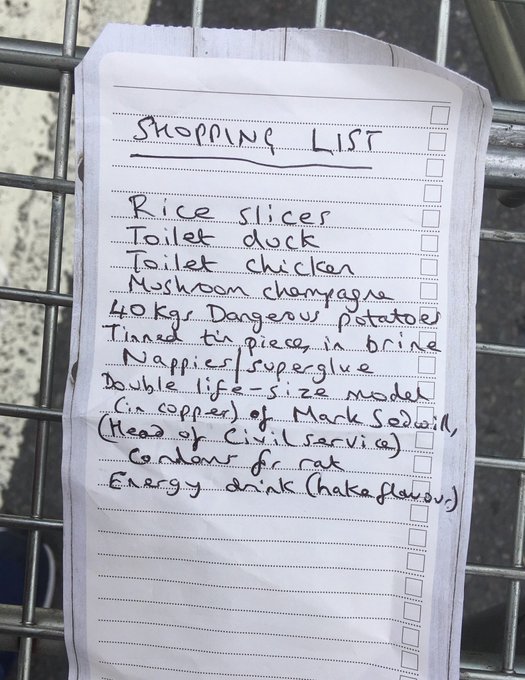 SHOPPING LIST
Rice slices
Toilet duck
Toilet chicken
Mushroom champagne
40kgs Dangerous potatoes
Tinned tin pieces in brine
Nappies/superglue
Double life-size model
(in copper) of Mark Sedwill,
(Head of Civil service)
Condoms for rat
Energy drink (hake flavour)